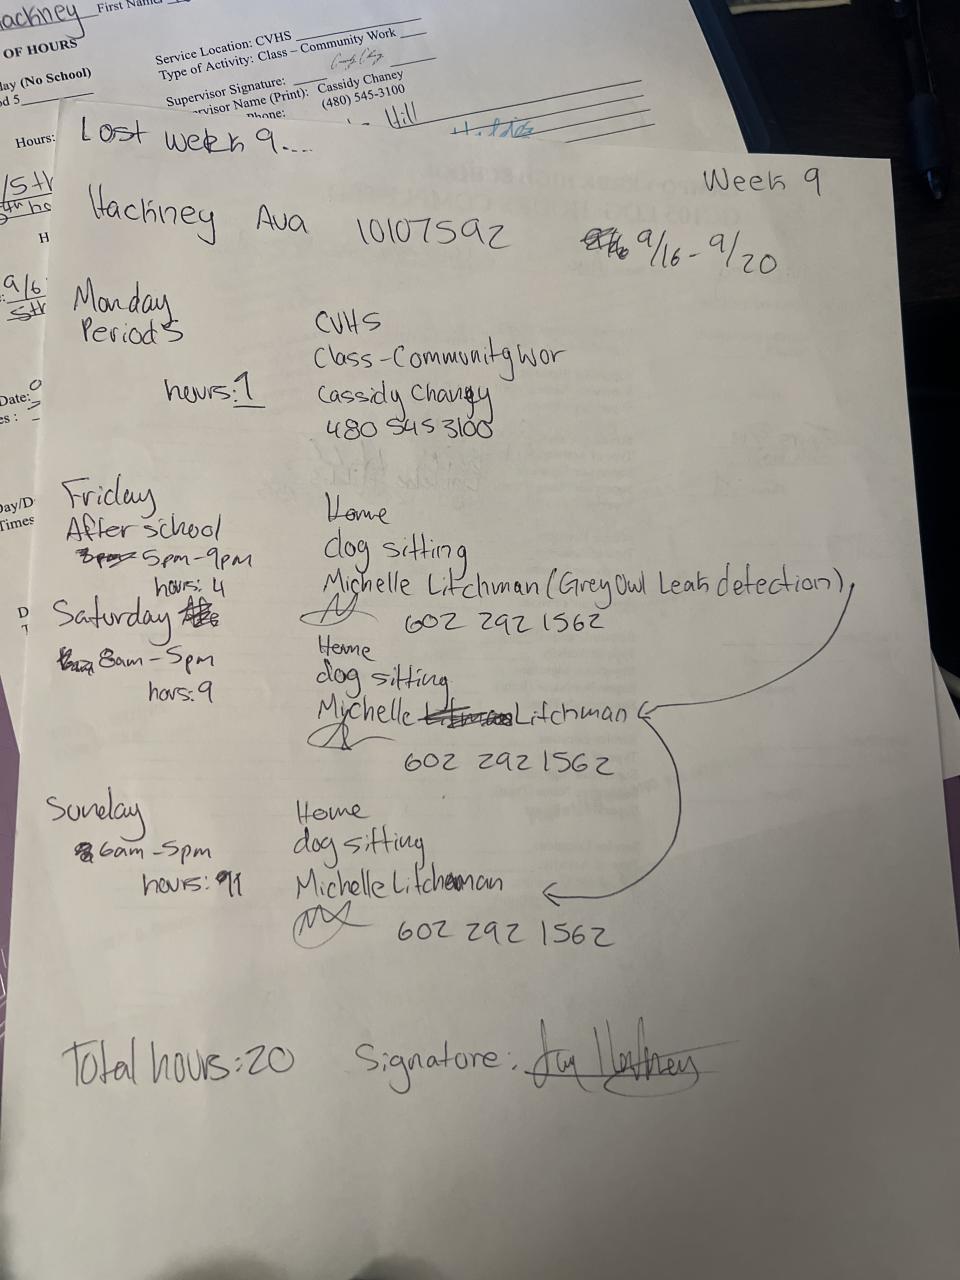 Hackney First Name
OF HOURS
day (No School)
d 5
Hours:
Service Location: CVHS
Type of Activity: Class – Community Work
Supervisor Signature:
rvisor Name (Print): Cassidy Chaney
Phone: (480) 545-3100
Hill
/5th
9/6
5th
Date:
es:
Day/D
Times
Lost week 9....
Week 9
Hackney Ava 10107592 9/16 - 9/20
Monday
Period 5 CVHS
Class-Community Wor
hours: 1 Cassidy Chaney
480 545 3100
Friday Home
After school dog sitting
5pm-9pm
hours: 4 Michelle Litchman (Grey Owl Leak detection)
602 292 1562
Saturday Home
8am-5pm dog sitting
hors: 9 Michelle Litchman
602 292 1562
Sunday Home
6am-5pm dog sitting
hours: 11 Michelle Litchman
602 292 1562
Total hours: 20 Signature: